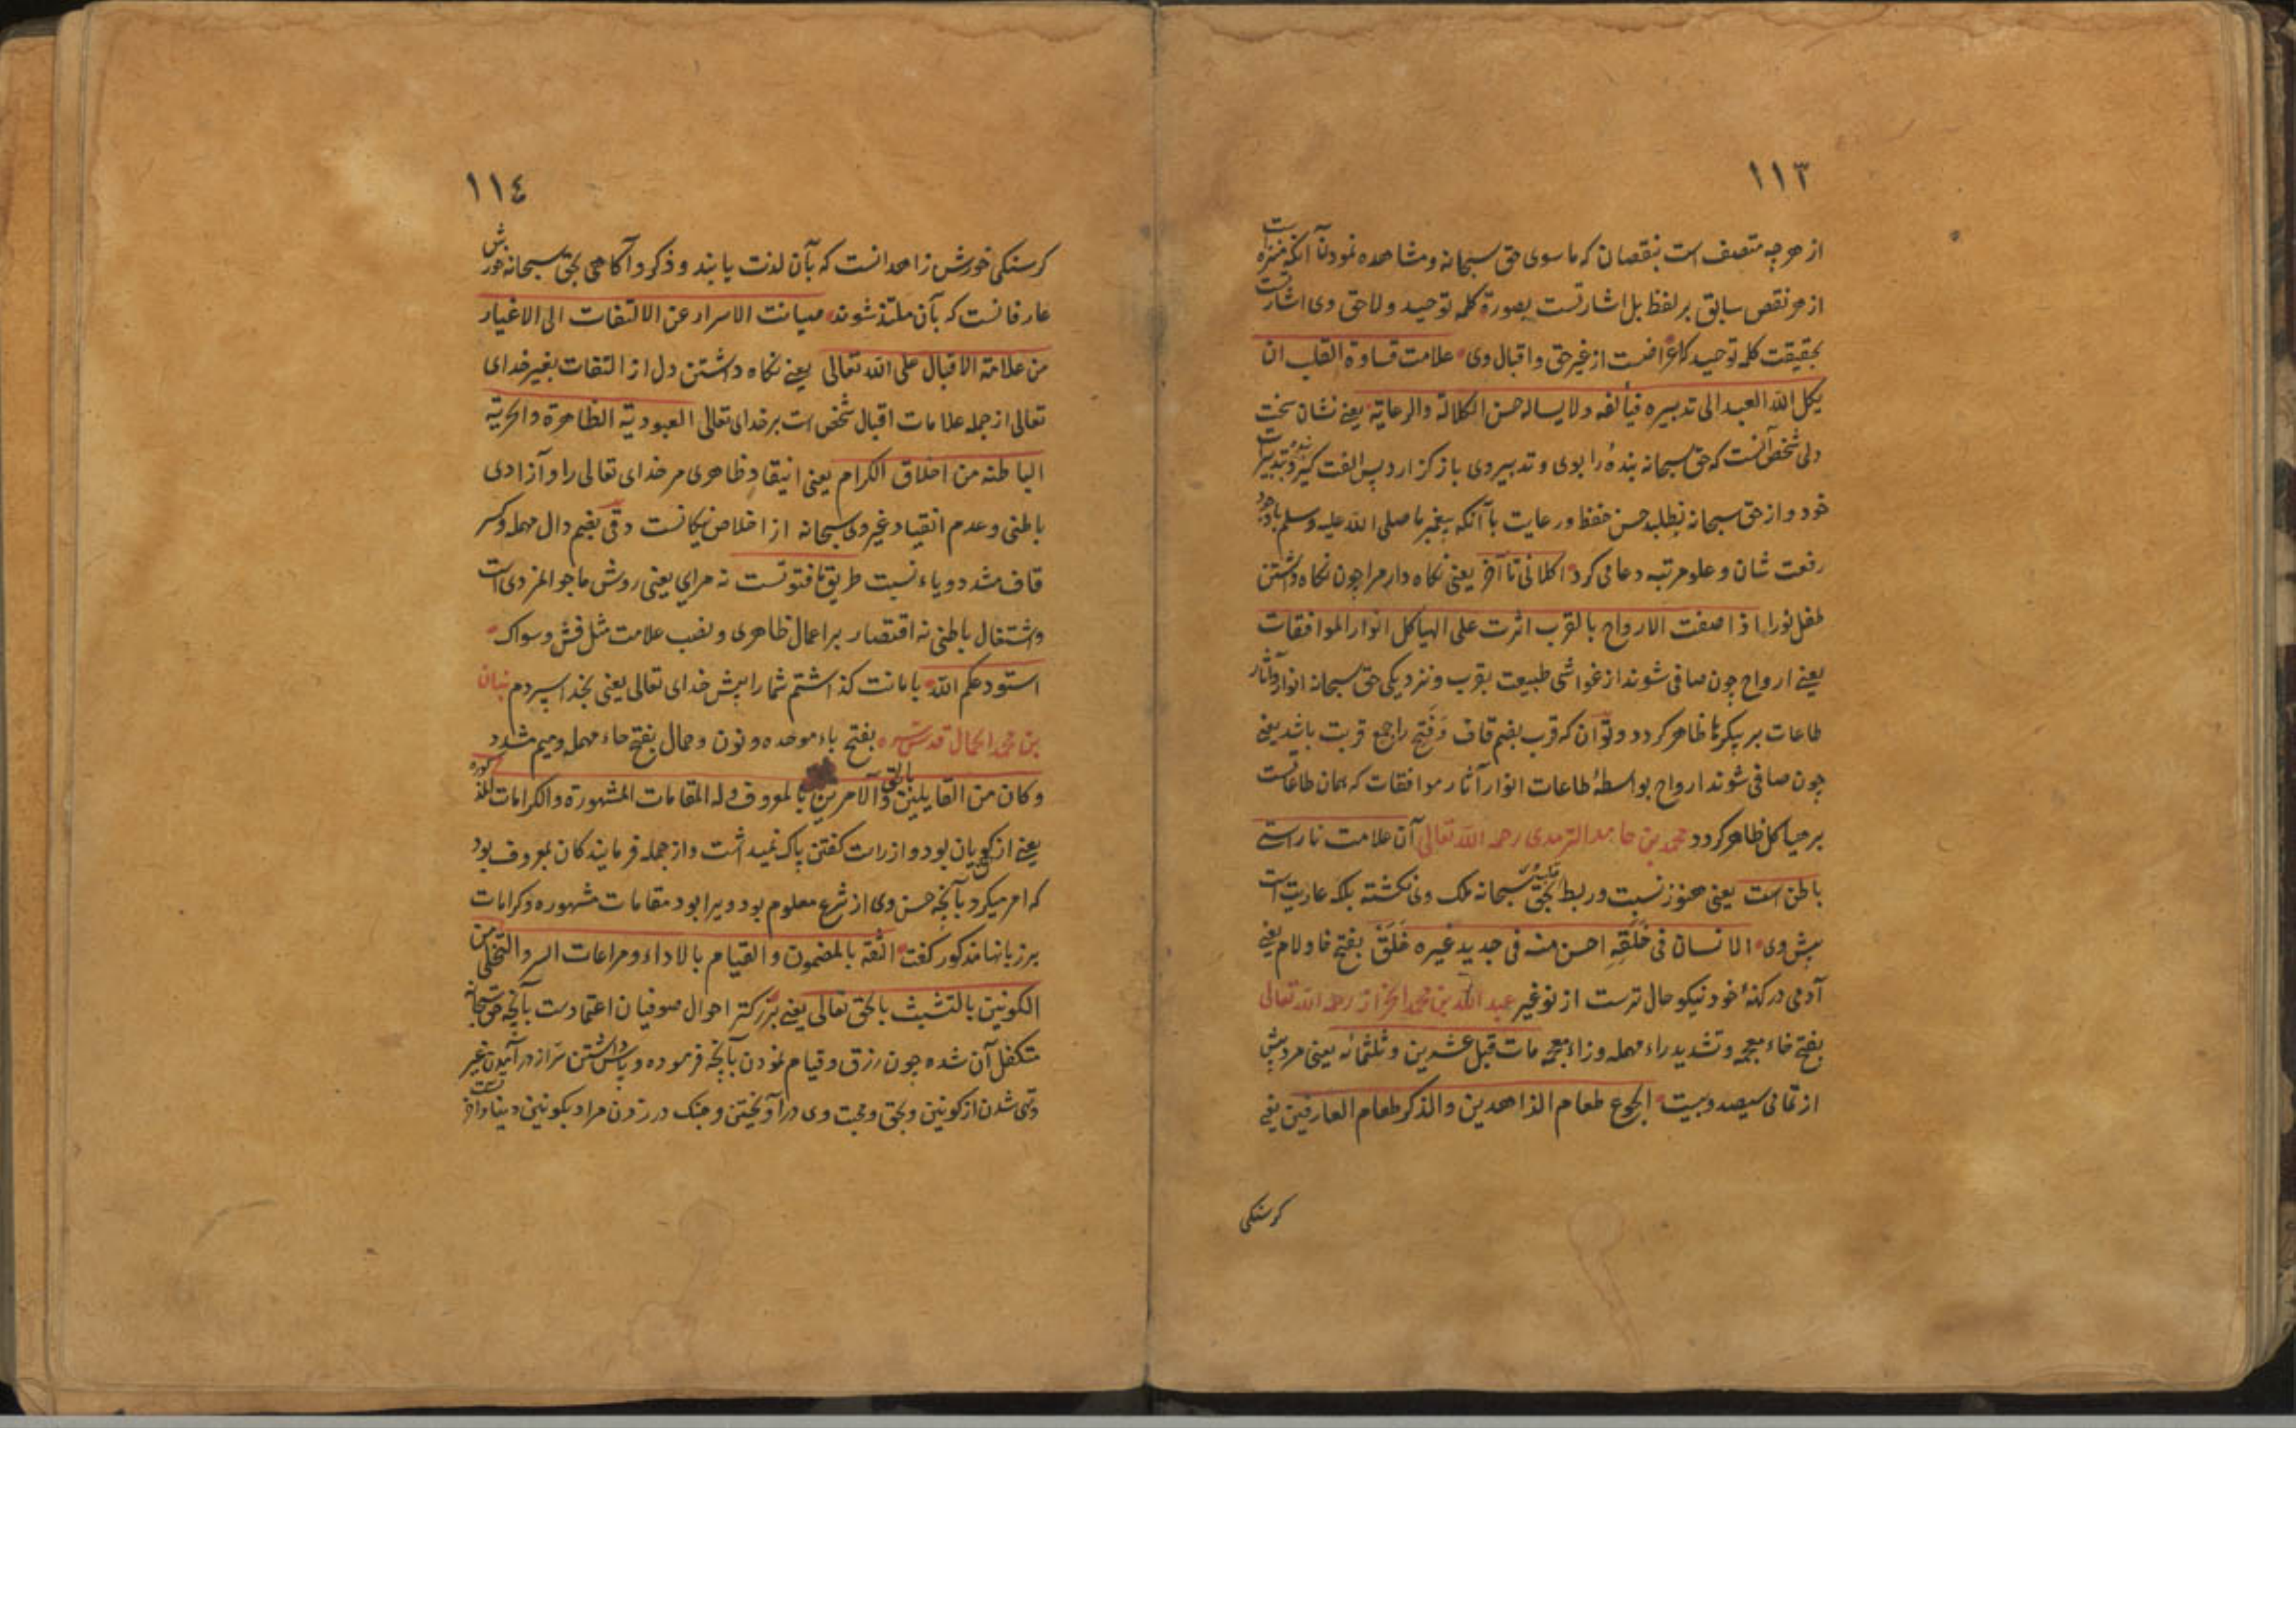 ١١٣
از هر چه متصف است بنقصان که ماسوی حق سبحانه و مشاهده نمودن آنکه منزه است
از هر نقص سابق بر لفظ بل اشارتست بصورة کلمه توحید و لاحق وی اشارتست
بحقیقت کلمه توحید که اعراضست از غیر حق و اقبال وی علامت قساوة القلب ان
یکل الله العبد الی تدبیره فیألفه ولا یساله حسن الکلائة والرعایة یعنی نشان سخت
دلی شخص آنست که حق سبحانه بندهٔ را بوی و تدبیر وی باز گزارد پس الفت گیرد بتدبیر
خود و از حق سبحانه نطلبد حسن حفظ و رعایت با آنکه پیغمبر ما صلی الله علیه وسلم باوجود
رفعت شان و علو مرتبه دعا می کرد اکلانی تا آخر یعنی نکاه دار مرا چون نکاه داشتن
طفل نورا اذا صفت الارواح بالقرب اثرت علی الهیاکل انوار الموافقات
یعنی ارواح چون صافی شوند از غواشی طبیعت بقرب و نزدیکی حق سبحانه انوار و آثار
طاعات بر پیکرها ظاهر کردد و توان که قرب بضم قاف و فتح را جمع قربت باشد یعنی
چون صافی شوند ارواح بواسطهٔ طاعات انوار آثار موافقات که همان طاعاتست
بر هیاکل ظاهر کردد محمد بن حامد الترمدی رحمه الله تعالی آن علامت ناراستی
باطن است یعنی هنوز نسبت و ربط بحق سبحانه ملک وی نکشته بلکه عاریت است
پیش وی الانسان فی خَلَقِهِ احسن منه فی جدید غیره خَلَق بفتح خا و لام یعنی
آدمی در کهنهٔ خود نیکو حال ترست از نو غیر عبد الله بن محمد الخراز رحمه الله تعالی
بفتح خاء معجمه و تشدید راء مهمله و زاء معجمه مات قبل عشرین و ثلثمائه یعنی مرد پیش
از تمامی سیصد و بیست الجوع طعام الزاهدین والذکر طعام العارفین یعنی
کرسنکی
١١٤
کرسنکی خورش زاهدانست که بآن لذت یابند و ذکر و آکاهی بحق سبحانه خورش
عارفانست که بآن ملتذ شوند صیانت الاسرار عن الالتفات الی الاغیار
من علامة الاقبال علی الله تعالی یعنی نکاه داشتن دل از التفات بغیر خدای
تعالی از جمله علامات اقبال شخص است بر خدای تعالی العبودیة الظاهرة والحریة
الباطنه من اخلاق الکرام یعنی انیقاد ظاهری مر خدای تعالی را و آزادی
باطنی و عدم انقیاد غیر وی سبحانه از اخلاص نیکانست دقی بضم دال مهمله و کسر
قاف مشدد و یاء نسبت طریق ما فتوتست نه مرای یعنی روش ما جوانمردی است
و اشتغال باطنی نه اقتصار بر اعمال ظاهری و نصب علامت مثل فش و سواک
استودعکم الله بامانت کذاشتم شما را پیش خدای تعالی یعنی بخدا سپردم بنان
بن محمد الحمال قدس سره بفتح باء موحده و نون و حمال بفتح حاء مهمله و میم مشدد
وکان من القایلین بالحق والآمرین بالمعروف وله المقامات المشهورة والکرامات المذکوره
یعنی از کویان بحق بود و از راست کفتن باک نمیداشت و از جمله فرمایندکان بمعروف بود
که امر میکرد بآنچه حسن وی از شرع معلوم بود و یرا بود مقامات مشهوره و کرامات
بر زبانها مذکور کفت الثقة بالمضمون و القیام بالاداء و مراعات السر والتخلی من
الکونین بالتشبث بالحق تعالی یعنی بزرکتر احوال صوفیان اعتمادست بآنچه حق سبحانه
متکفل آن شده چون رزق و قیام نمودن بآنچه فرموده و پاس داشتن سر از در آمدن غیر
و تهی شدن از کونین و بحق و محبت وی در آویختن و چنک در زدن مراد بکونین دنیا و آخرتست